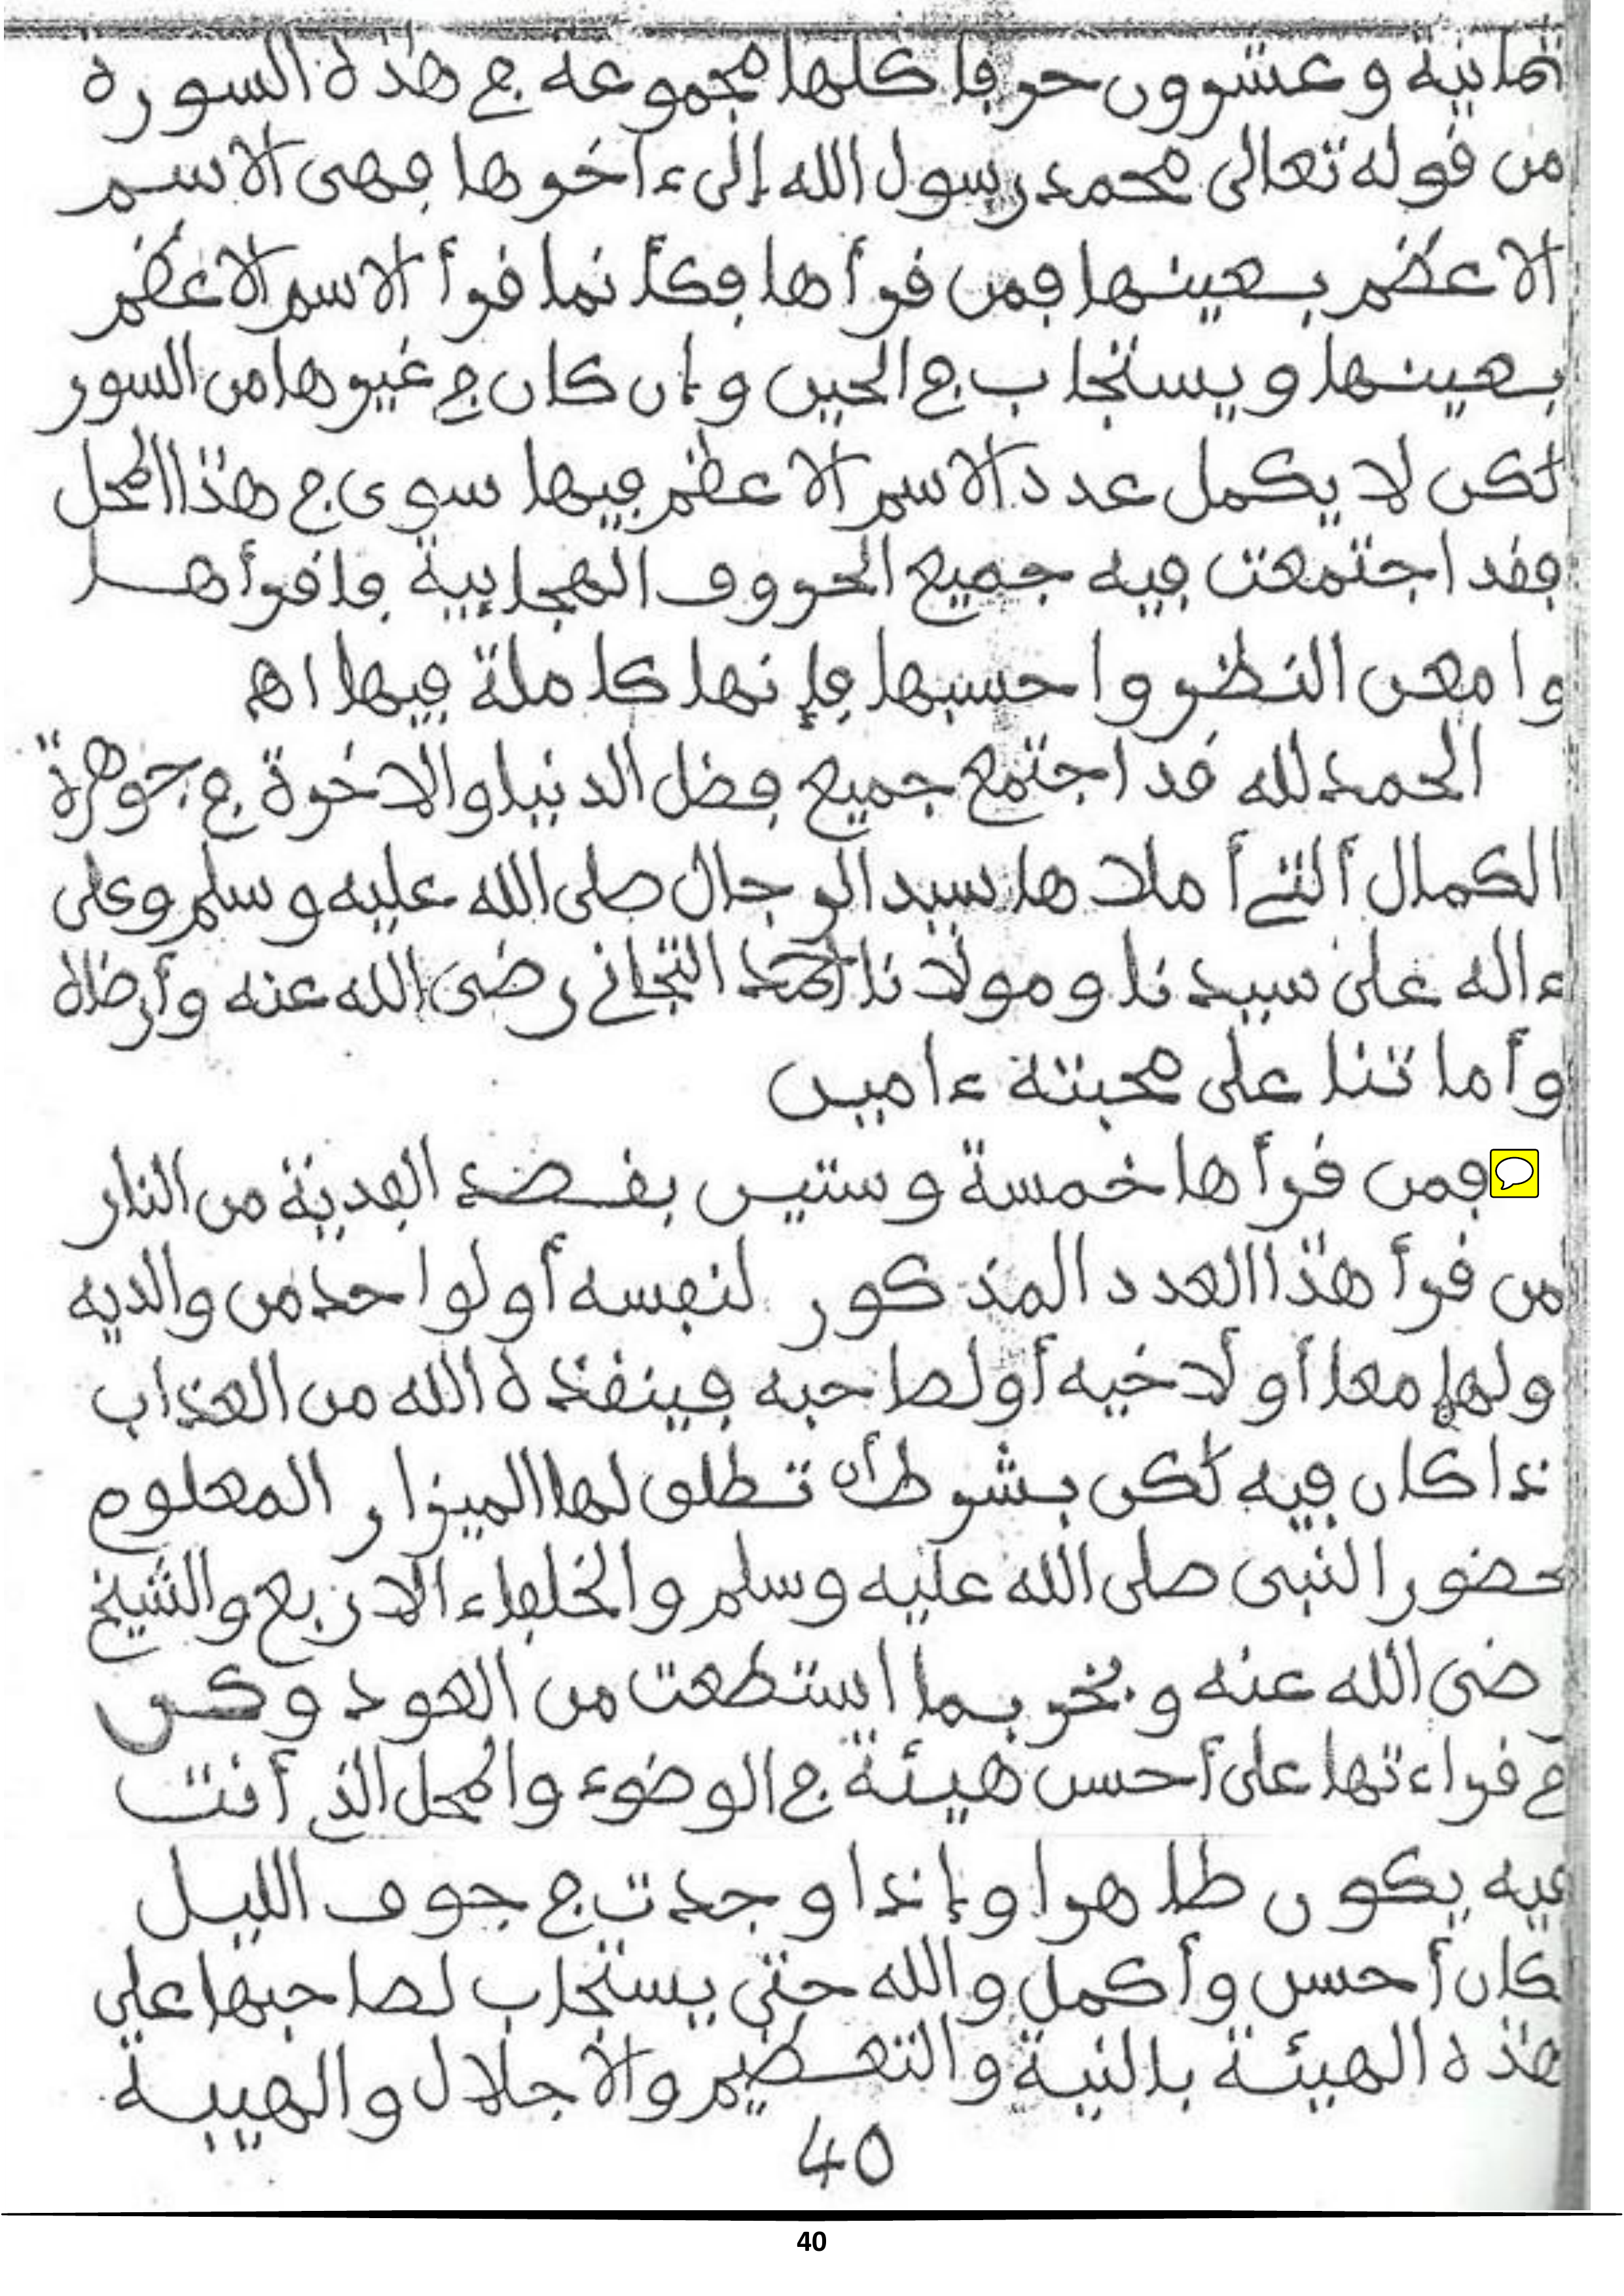 ثمانية وعشرون حرفا كلها مجموعة في هذه السورة
من قوله تعالى محمد رسول الله إلى ءاخرها فهى الاسم
الاعظم بعينها فمن قرأها فكأنما قرأ الاسم الاعظم
بعينها ويستجاب في الحين وإن كان في غيرها من السور
لكن لا يكمل عدد الاسم الاعظم فيها سوى في هذا المحل
فقد اجتمعت فيه جميع الحروف الهجايية فاقرأها
وامعن النظر واحسبها فإنها كاملة فيها اه
الحمد لله قد اجتمع جميع فضل الدنيا والاخرة في جوهرة
الكمال ألتي أملاها سيد الرجال صلى الله عليه وسلم وعلى
ءاله على سيدنا ومولانا احمد التجاني رضى الله عنه وأرضاه
وأماتنا على محبته ءامين
فمن قرأها خمسة وستين بقصد الفدية من النار
من قرأ هذا العدد المذكور لنفسه أو لواحد من والديه
ولهما معا أو لاخيه أو لصاحبه فينقذه الله من العذاب
ذا كان فيه لكن بشرط أن تطلق لها الميزار المعلوم
حضور النبى صلى الله عليه وسلم والخلفاء الاربع والشيخ
ضى الله عنه وبخر بما استطعت من العود وكن
في قراءتها على أحسن هيئة في الوضوء والمحل الذي أنت
فيه يكون طاهرا وإذا وجدت في جوف الليل
كان أحسن وأكمل والله حتى يستجاب لصاحبها على
هذه الهيئة بالنية والتعظيم والاجلال والهيبة
40
40